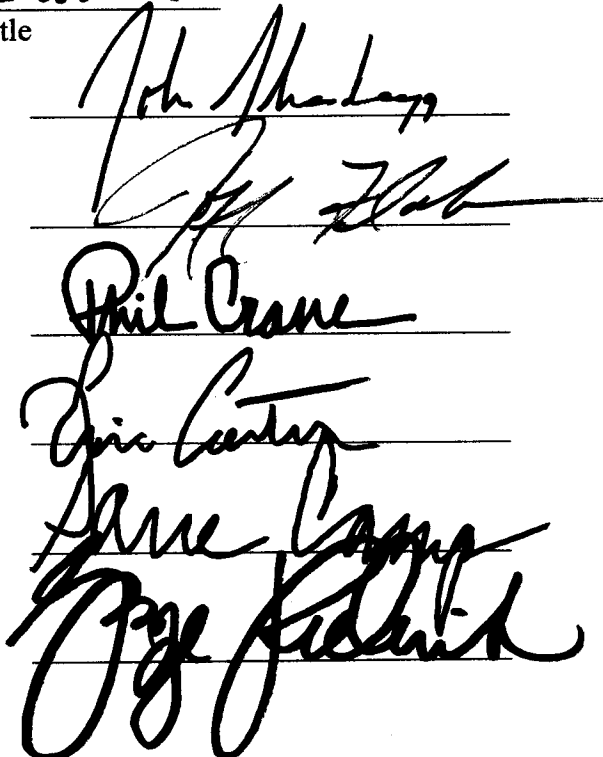 tle
John Shadegg
Jeff Flake
Phil Crane
Eric Cantor
Dave Camp